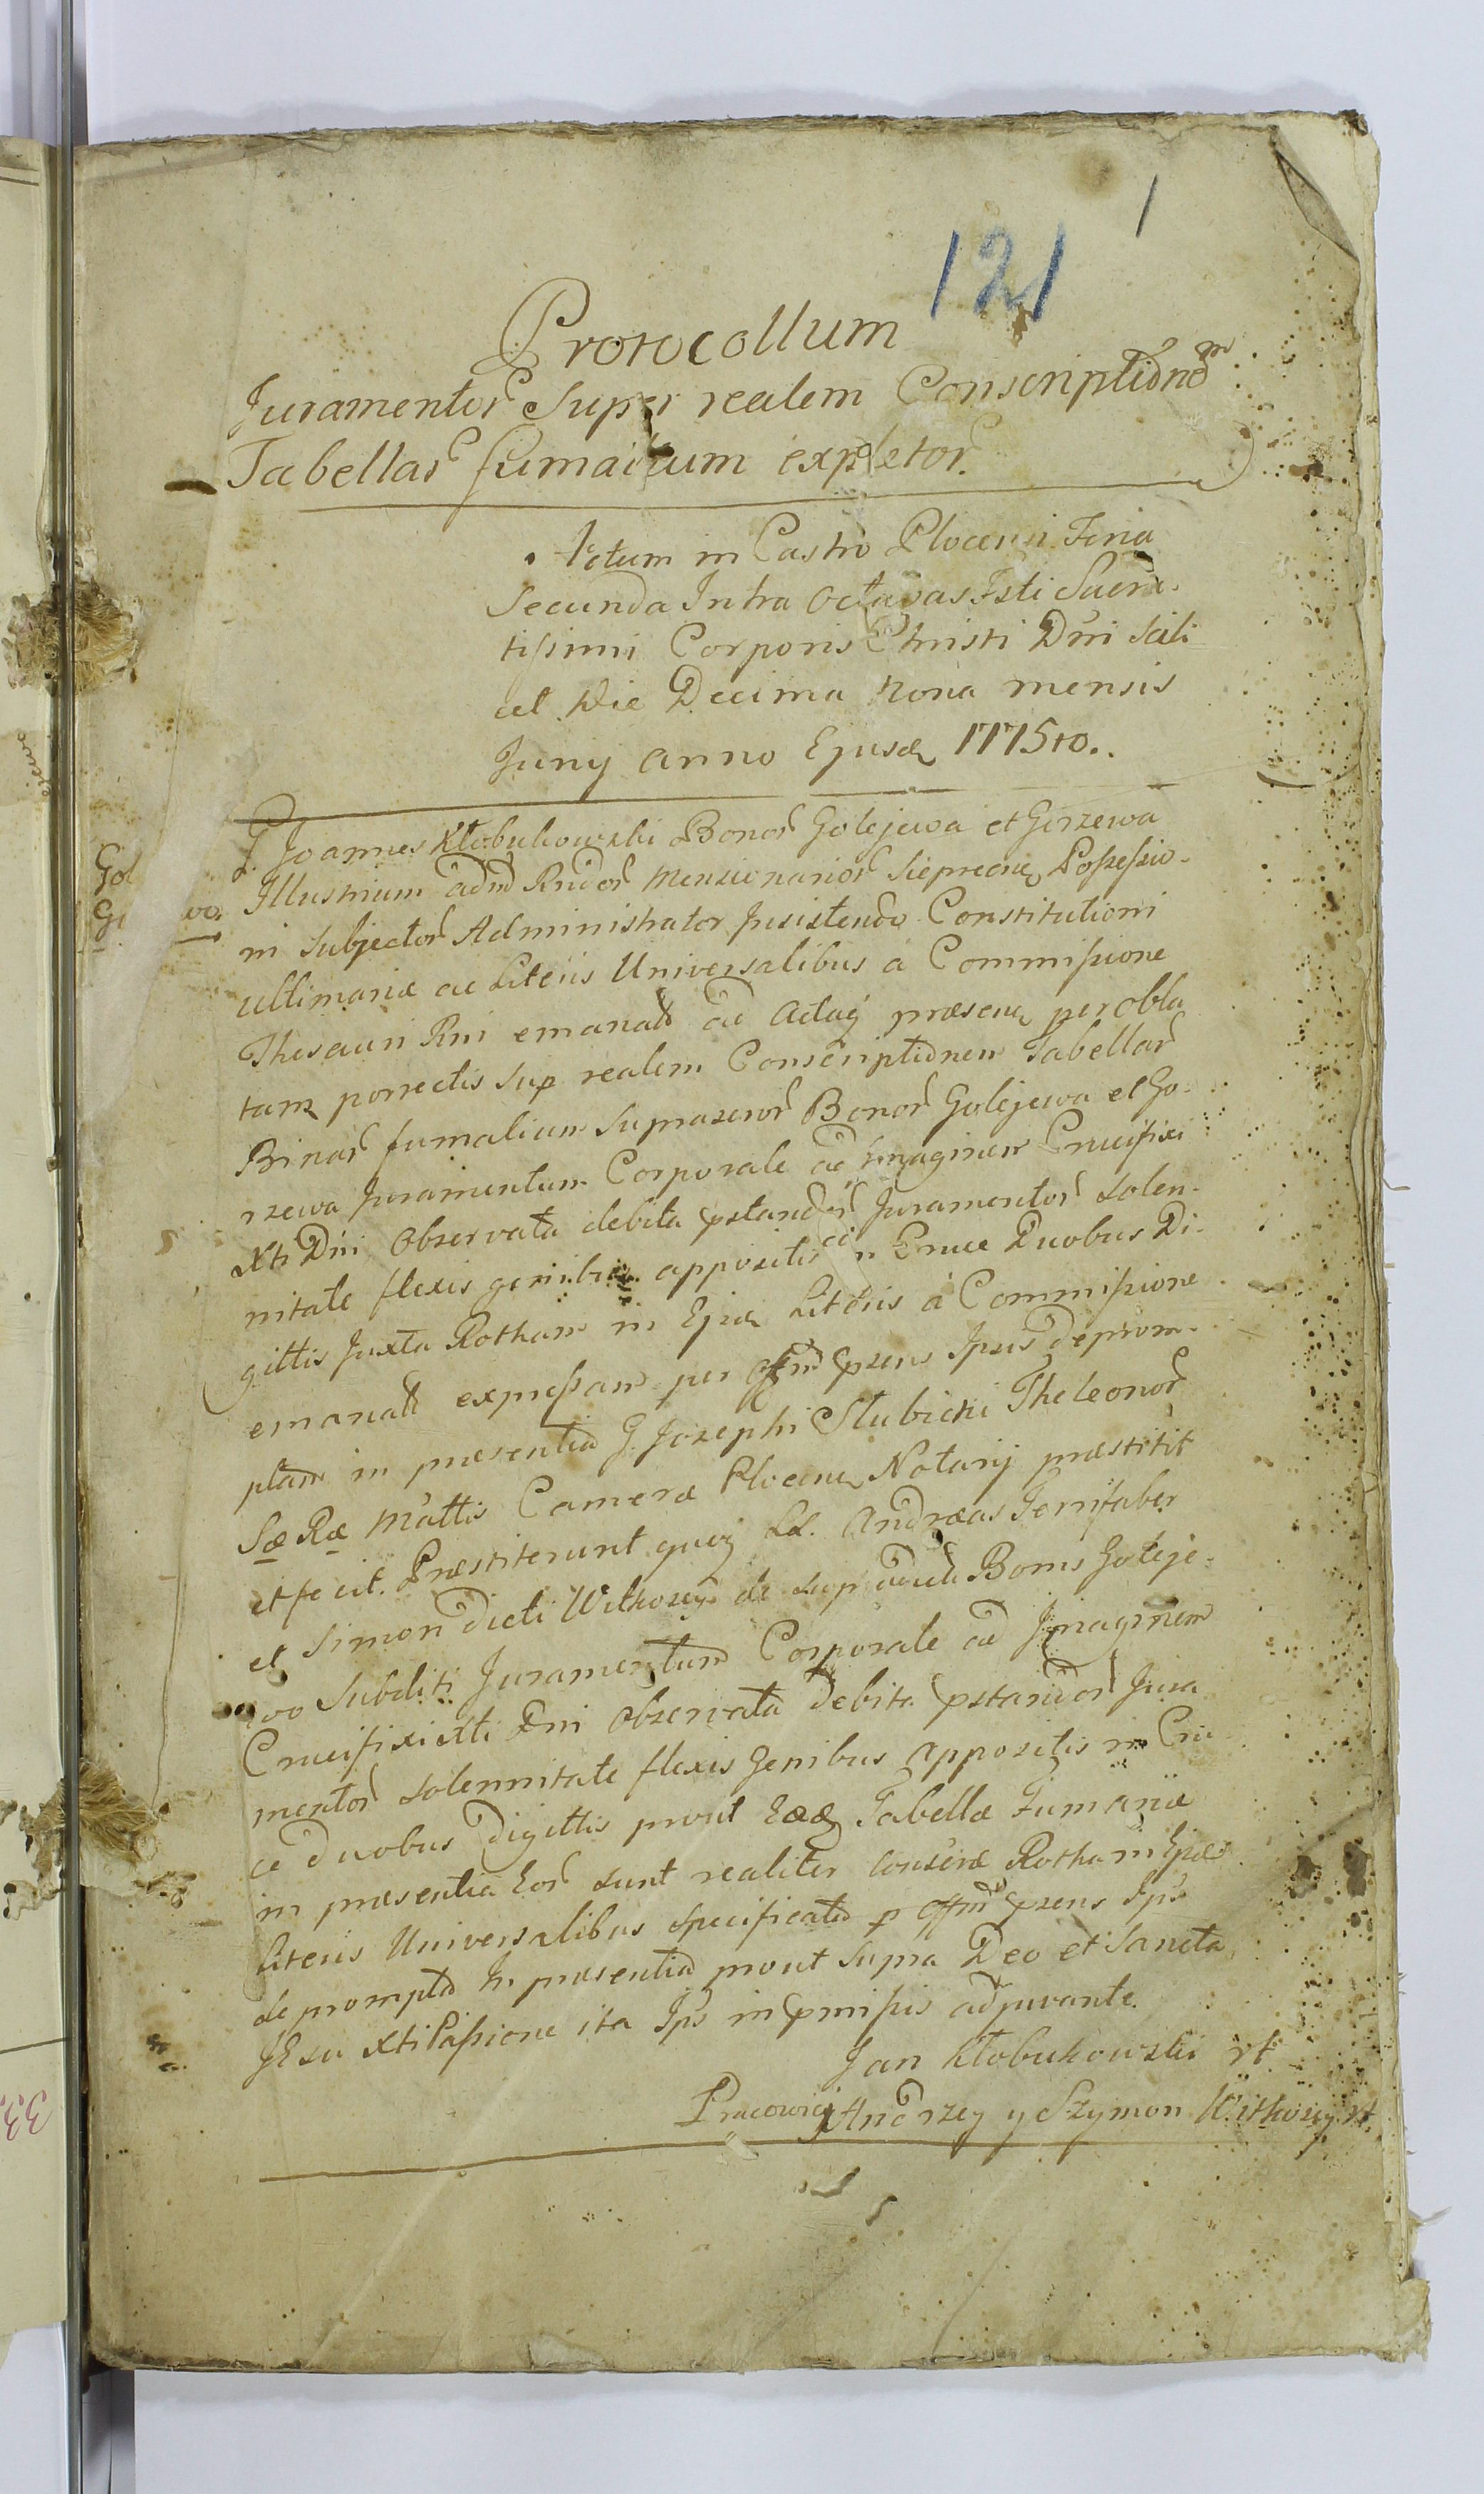 1
121
Protocollum
Juramentor Super realem Conscriptionem
Tabellar fumarium expletor
Actum in Castro Plocensi Feria
Secunda Intra Octavas Festi Sacra-
tissimi Corporis Christi Dni Scili
cet Die Decima Nona mensis
Juny anno Ejusd 1775to.
G. Joannes Kłobukowski Bonor Golejewa et Gorzewa
Illustrium adm Rndor Mensionarior Sieprecen Possessio-
ni Subjector Administrator Insistendo Constitutioni
ultimariæ ac Literis Universalibus a Commissione
Thesauri Rni emanat ad Actaq præsen per obla
tam porrectis Sup realem Conscriptionem Tabellar
Binar fumalium Supraser Bonor Golejewa et Go-
rzewa Juramentum Corporale ad Imaginem Crucifixi
Xti Dni Observata debita pstandor Juramentor Solen-
nitate flexis genibus appositis in Cruce Duobus Di-
gittis Juxta Rotham in Ejusd Literis a Commissione
emanat expressam per Offm psens Ipsis deprom-
ptam in præsentia G. Josephi Słubicki Theleonor
Sæ Ræ Mattis Camera Plocen Notarij præstitit
et fecit. Præstiterunt quoq LL. Andræas Ferrifaber
et Simon dicti Witkosey de supradictis Bonis Goleje-
wo Subditi Juramentum Corporale ad Imaginem
Crucifixi Xti Dni Observata Debita pstandor Jura
mentor Solennitate flexis Genibus appositis in Cru
ce Duobus Digittis prout Eædq Tabellæ Fumariæ
in præsentia Eor sunt realiter conscræ Rotha in Ejusd
Literis Universalibus Specificata p Offm psens Ips
deprompta In præsentia prout Supra Deo et Sancta
JEsu Xti Passione ita Ips in pmissis adjuvante.
Jan Kłobukowski rt
Pracowici Andrzey y Szymon Witkosey rt.